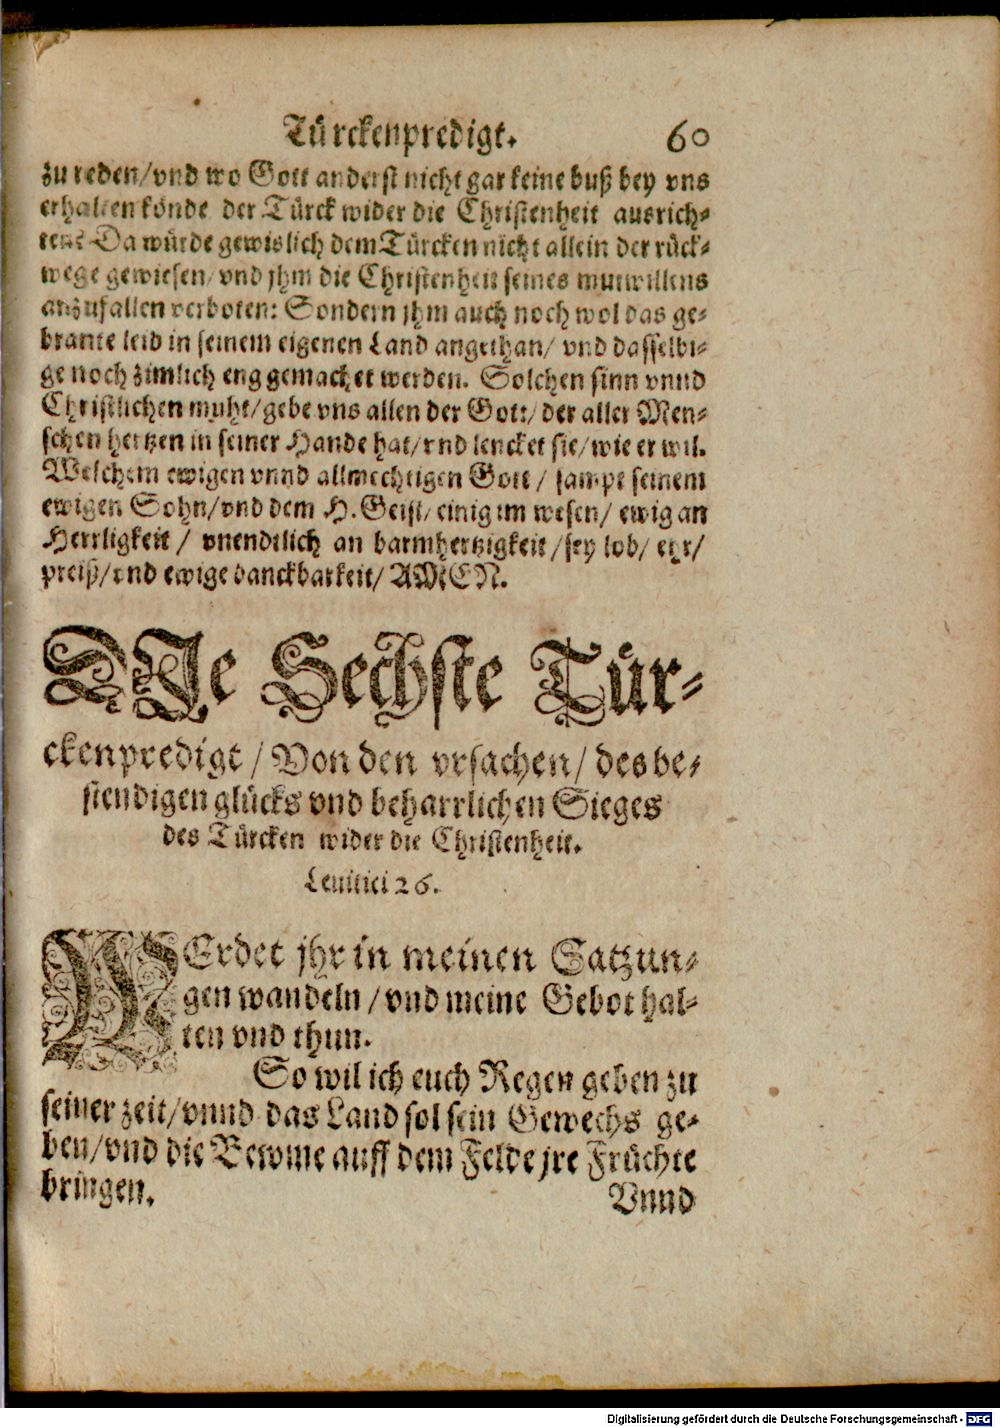 Türckenpredigt. 60
zu reden/vnd wo Gott anderst nicht gar keine buß bey vns
erhalten könde der Türck wider die Christenheit ausrich-
ten? Da würde gewislich dem Türcken nicht allein der rück-
wege gewiesen/vnd jhm die Christenheit seines mutwillens
anzufallen verboten: Sondern jhm auch noch wol das ge-
brante leid in seinem eigenen Land angethan/ vnd dasselbi-
ge noch zimlich eng gemachet werden. Solchen sinn vnnd
Christlichen muht/gebe vns allen der Gott/ der aller Men-
schen hertzen in seiner Hande hat/vnd lencket sie/wie er wil.
Welchem ewigen vnnd allmechtigen Gott / sampt seinem
ewigen Sohn/vnd dem H. Geist/ einig im wesen/ ewig an
Herrligkeit / vnendtlich an barmhertzigkeit/sey lob/ ehr/
preiß/vnd ewige danckbarkeit/ AMEN.
DJe Sechste Tür-
ckenpredigt / Von den vrsachen/ des be-
stendigen glücks vnd beharrlichen Sieges
des Türcken wider die Christenheit.
Leuitici 26.
WErdet jhr in meinen Satzun-
gen wandeln/vnd meine Gebot hal-
ten vnd thun.
So wil ich euch Regen geben zu
seiner zeit/vnnd das Land sol sein Gewechs ge-
ben/vnd die Bewme auff dem Felde jre Früchte
bringen.
Vnnd
Digitalisierung gefördert durch die Deutsche Forschungsgemeinschaft - DFG